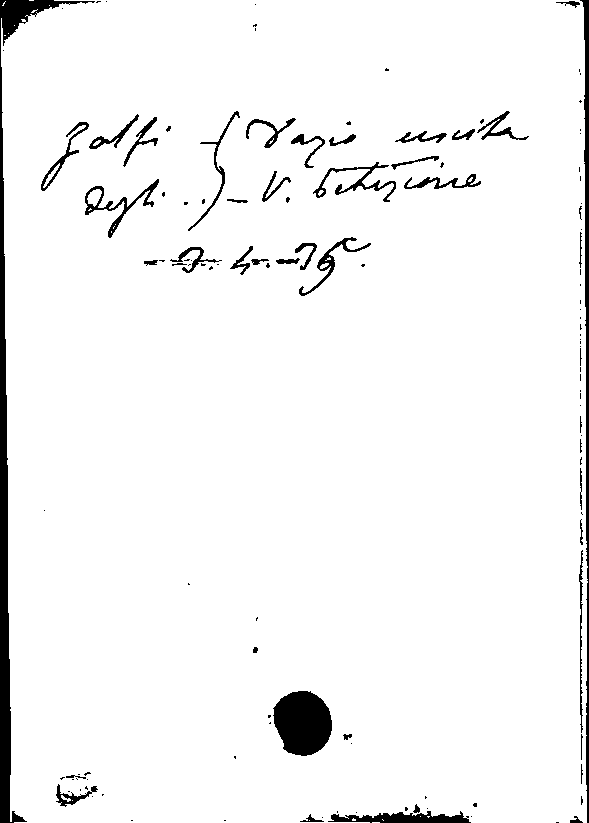 Zolfi - (Dazio uscita
degli ..) - V. Petizione
- 9. 4. - 76